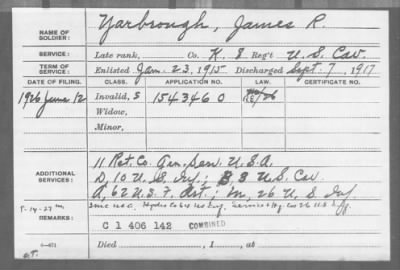 NAME OF SOLDIER: Yarbrough, James R.
SERVICE: Late rank, Co. K. 8 Reg't U.S. Cav.
TERM OF SERVICE: Enlisted Jan. 23, 1915 Discharged Sept. 7, 1917
DATE OF FILING. CLASS. APPLICATION NO. LAW. CERTIFICATE NO.
1926 June 12 Invalid, S 1543460
Widow,
Minor,
ADDITIONAL SERVICES: 11 Ret. Co. Gen. Serv. U.S.A.
D, 10 U.S. Inf; B 8 U.S. Cav
A, 62 U.S.F. Art; M, 26 U.S. Inf
REMARKS:
C 1 406 142 COMBINED
Died , 1 , at